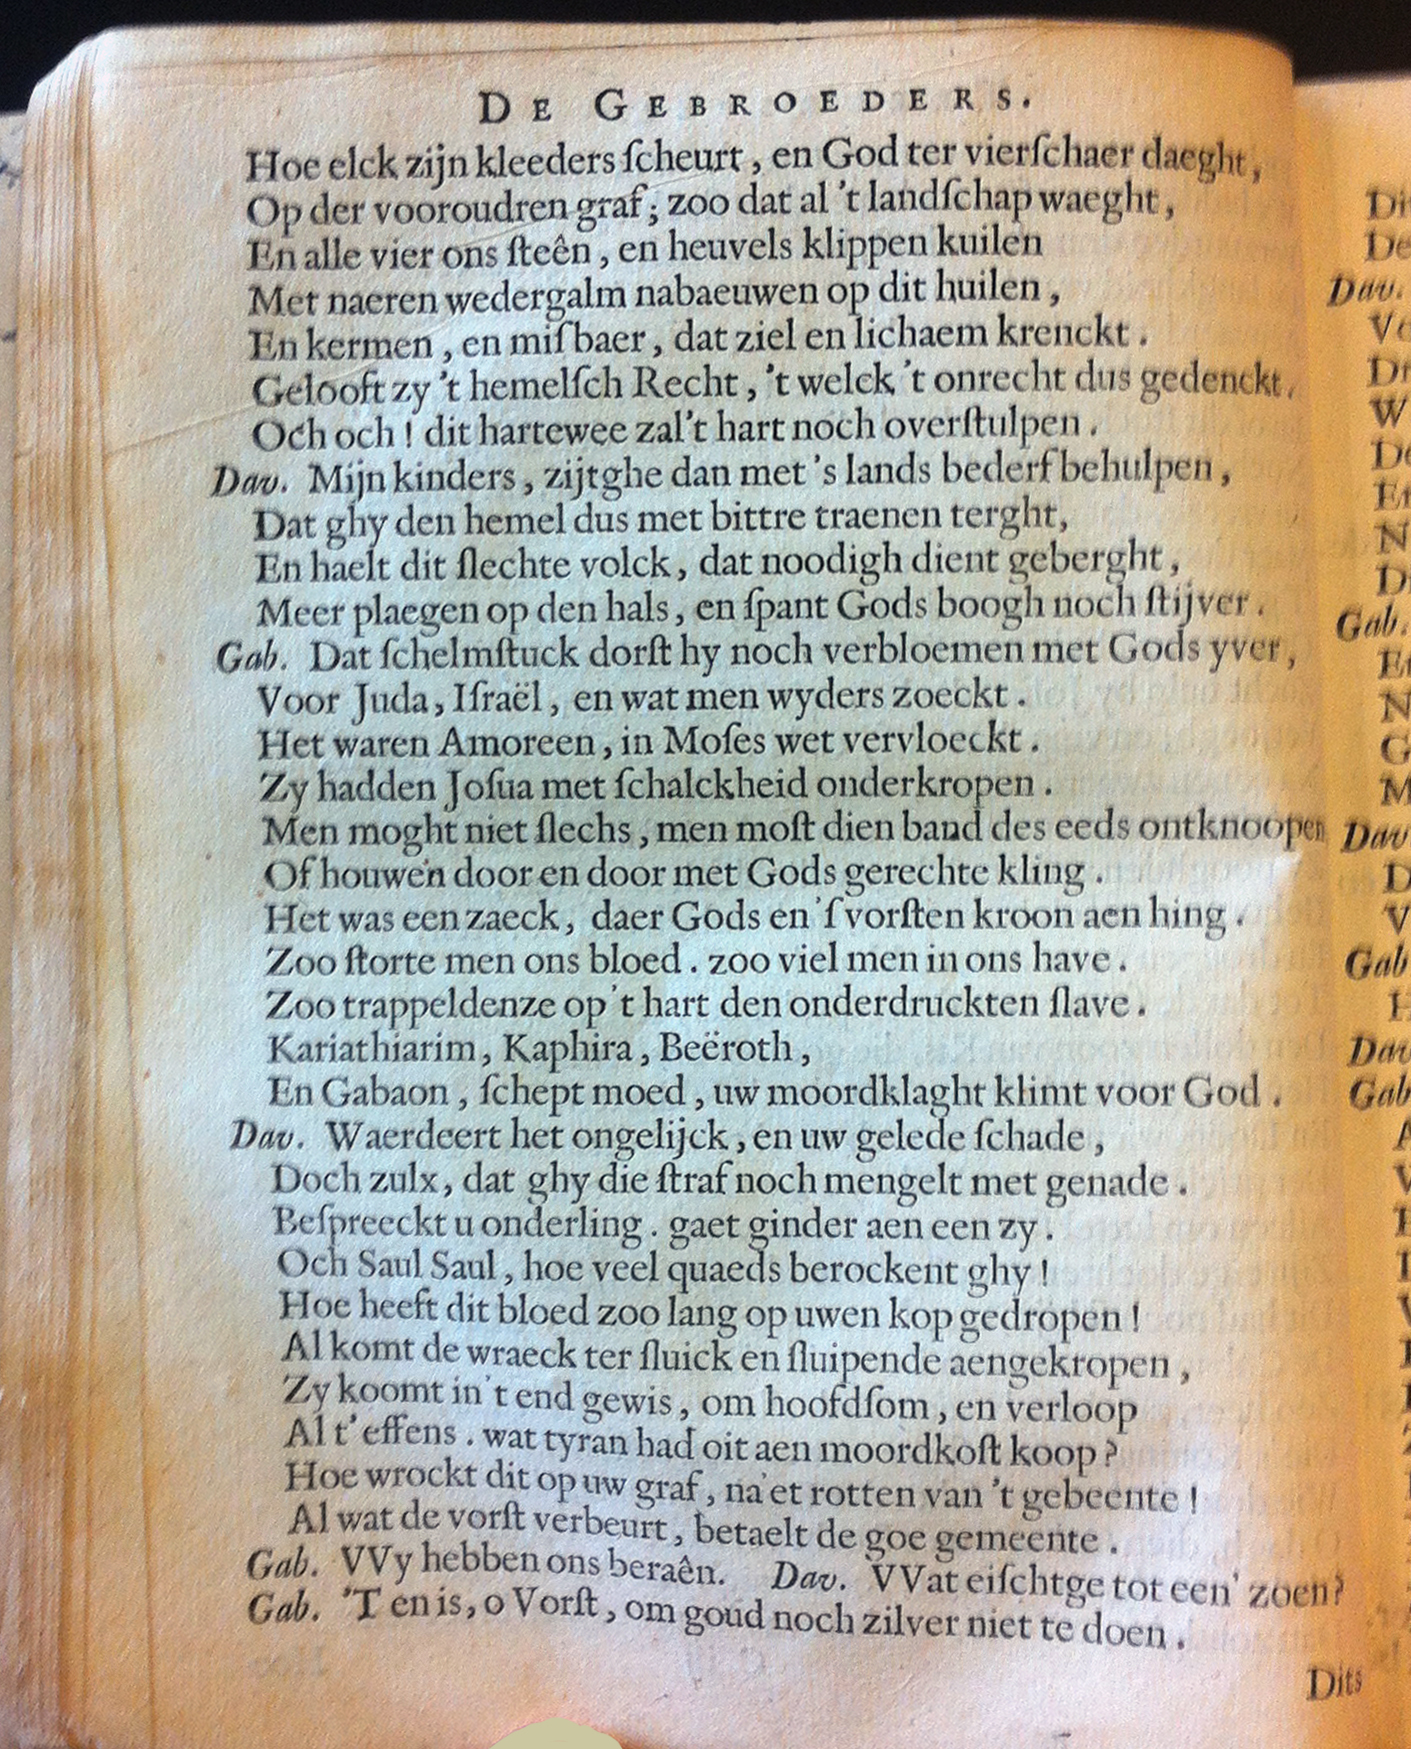 DE GEBROEDERS.
Hoe elck zijn kleeders ſcheurt, en God ter vierſchaer daeght,
Op der vooroudren graf; zoo dat al 't landſchap waeght,
En alle vier ons ſteên, en heuvels klippen kuilen
Met naeren wedergalm nabaeuwen op dit huilen,
En kermen, en miſbaer, dat ziel en lichaem krenckt.
Gelooft zy 't hemelſch Recht, 't welck 't onrecht dus gedenckt.
Och och! dit hartewee zal't hart noch overſtulpen.
Dav. Mijn kinders, zijtghe dan met 's lands bederf behulpen,
Dat ghy den hemel dus met bittre traenen terght,
En haelt dit ſlechte volck, dat noodigh dient geberght,
Meer plaegen op den hals, en ſpant Gods boogh noch ſtijver.
Gab. Dat ſchelmſtuck dorſt hy noch verbloemen met Gods yver,
Voor Juda, Iſraël, en wat men wyders zoeckt.
Het waren Amoreen, in Moſes wet vervloeckt.
Zy hadden Joſua met ſchalckheid onderkropen.
Men moght niet ſlechs, men moſt dien band des eeds ontknoopen
Of houwen door en door met Gods gerechte kling.
Het was een zaeck, daer Gods en 'ſ vorſten kroon aen hing.
Zoo ſtorte men ons bloed. zoo viel men in ons have.
Zoo trappeldenze op 't hart den onderdruckten ſlave.
Kariathiarim, Kaphira, Beëroth,
En Gabaon, ſchept moed, uw moordklaght klimt voor God.
Dav. Waerdeert het ongelijck, en uw gelede ſchade,
Doch zulx, dat ghy die ſtraf noch mengelt met genade.
Beſpreeckt u onderling. gaet ginder aen een zy.
Och Saul Saul, hoe veel quaeds berockent ghy!
Hoe heeft dit bloed zoo lang op uwen kop gedropen!
Al komt de wraeck ter ſluick en ſluipende aengekropen,
Zy koomt in't end gewis, om hoofdſom, en verloop
Al t' effens. wat tyran had oit aen moordkoſt koop?
Hoe wrockt dit op uw graf, na'et rotten van 't gebeente!
Al wat de vorſt verbeurt, betaelt de goe gemeente.
Gab. VVy hebben ons beraên. Dav. VVat eiſchtge tot een' zoen?
Gab. 'T en is, o Vorſt, om goud noch zilver niet te doen.
Dits
Dav.
Gab.
Dav
Gab
Dav
Gab